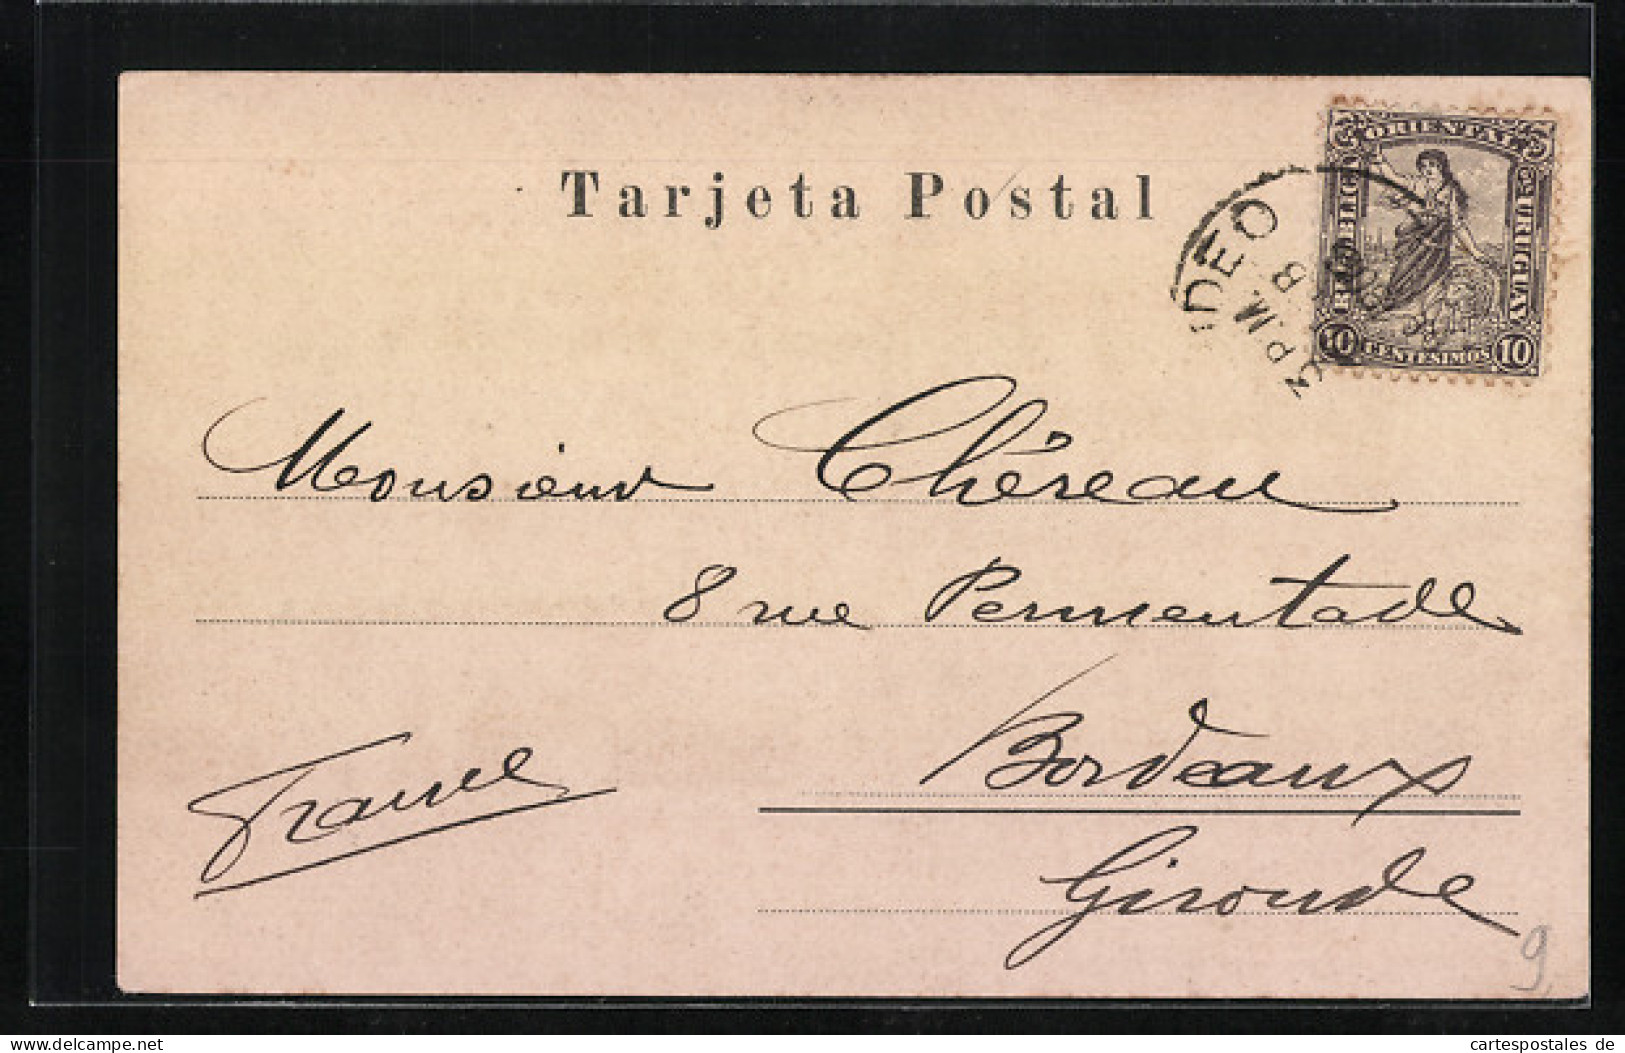 Tarjeta Postal
REPUBLICA ORIENTAL DEL URUGUAY
10 CENTESIMOS 10
DEO
P.M. 8
Monsieur Chéreau
8 rue Permentade
Bordeaux
Gironde
France
9
cartespostales-de-collection.fr
cartespostales de